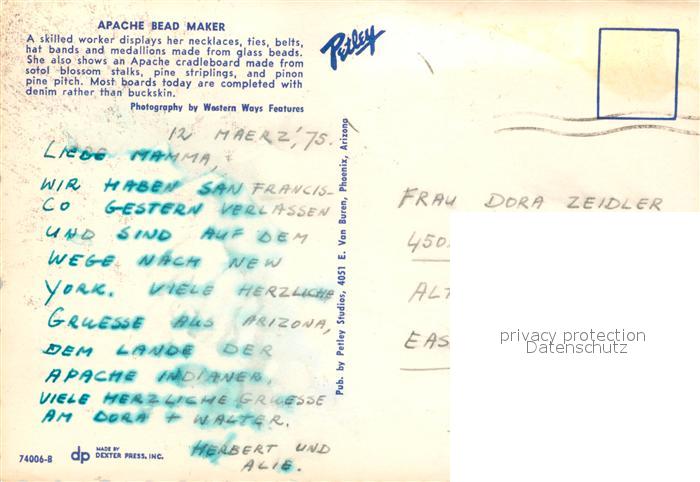 APACHE BEAD MAKER
A skilled worker displays her necklaces, ties, belts,
hat bands and medallions made from glass beads.
She also shows an Apache cradleboard made from
sotol blossom stalks, pine striplings, and pinon
pine pitch. Most boards today are completed with
denim rather than buckskin.
Photography by Western Ways Features
Petley
12 MAERZ, '75.
LIEBE MAMMA,
WIR HABEN SAN FRANCIS-
CO GESTERN VERLASSEN
UND SIND AUF DEM
WEGE NACH NEW
YORK. VIELE HERZLICHE
GRUESSE AUS ARIZONA,
DEM LANDE DER
APACHE INDIANER.
VIELE HERZLICHE GRUESSE
AM DORA + WALTER.
HERBERT UND
ALIE.
74006-B
dp
MADE BY
DEXTER PRESS, INC.
Pub. by Petley Studios, 4051 E. Van Buren, Phoenix, Arizona
FRAU DORA ZEIDLER
450
ALT
EAS
privacy protection
Datenschutz